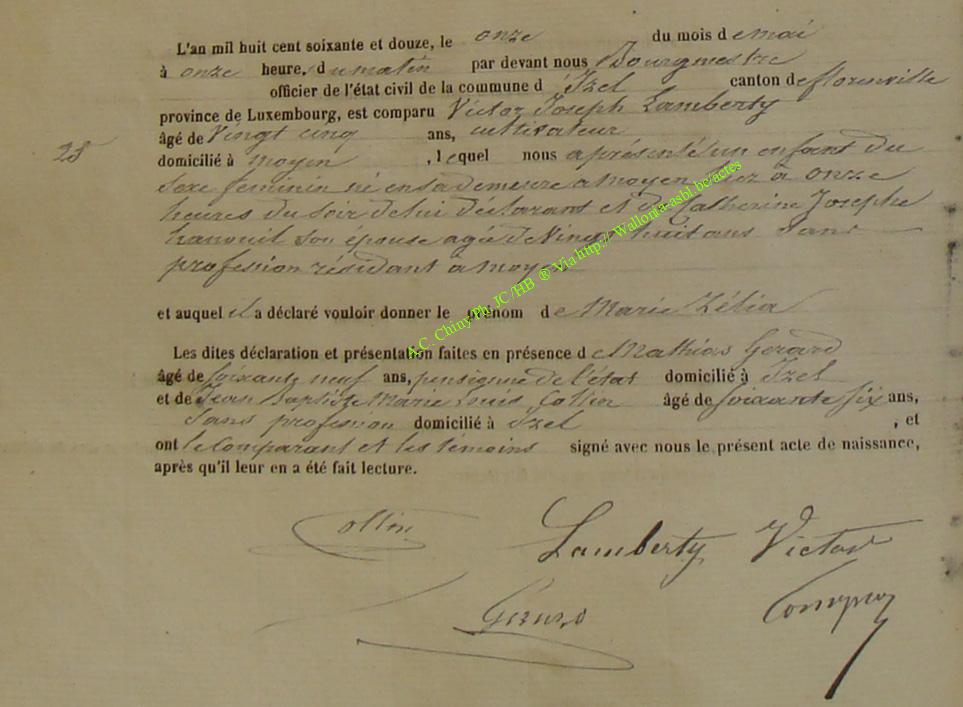 L'an mil huit cent soixante et douze, le onze du mois de mai
à onze heure, du matin par devant nous Bourgmestre
officier de l'état civil de la commune d'Izel canton de florenville
province de Luxembourg, est comparu Victor Joseph Lamberty
âgé de Vingt cinq ans, cultivateur
28
domicilié à moyen, lequel nous a présenté un enfant du
sexe feminin né en sa demeure a moyen à onze
heures du soir de lui déclarant et de Catherine Josephe
son épouse agée de huit ans Sans
profession résidant à moyen
et auquel il a déclaré vouloir donner le prénom de Marie Zélia
Les dites déclaration et présentation faites en présence de Mathias Gerard
âgé de soixante neuf ans, pensionné de l'état domicilié à Izel
et de Jean Baptiste Marie Louis Collin âgé de soixante six ans,
Sans profession domicilié à Izel, et
ont le comparant et les témoins signé avec nous le présent acte de naissance,
après qu'il leur en a été fait lecture.
Collin
Lamberty Victor
A.C. Chiny Ph. JC/HB ® Via http:// Wallonia-asbl.be/actes